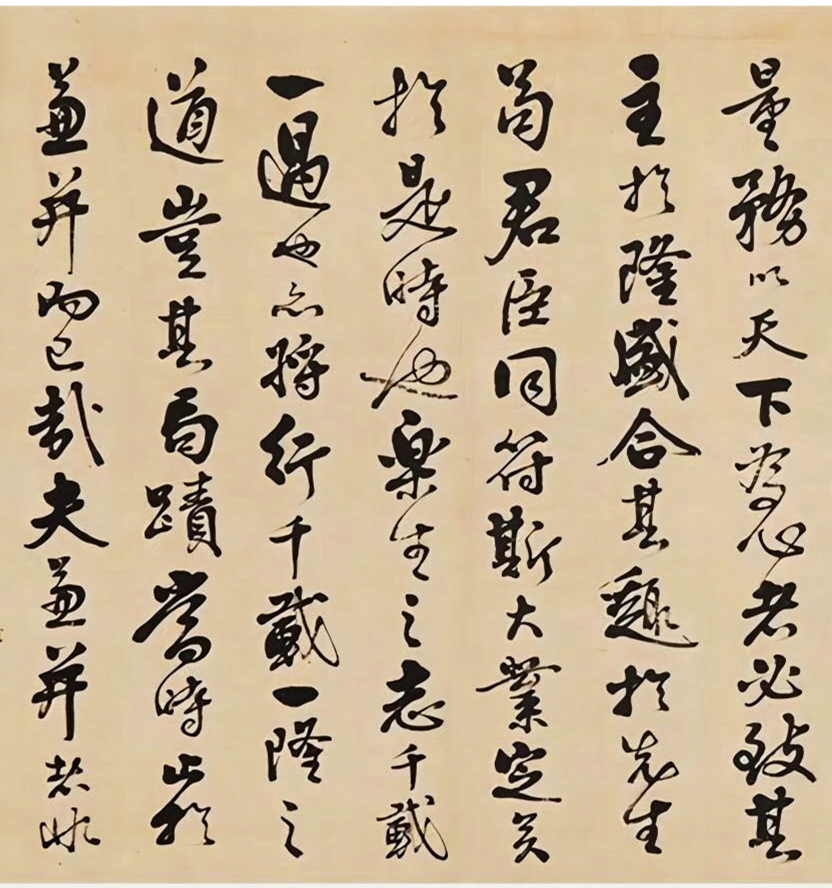 量務以天下為心者必致其
主於隆盛合其趣於先生
苟君臣同符斯大業定矣
於是時也楽生之志千載
一遇也亦將行千載一隆之
道豈其局蹟當時止於
兼并而已哉夫兼并者非